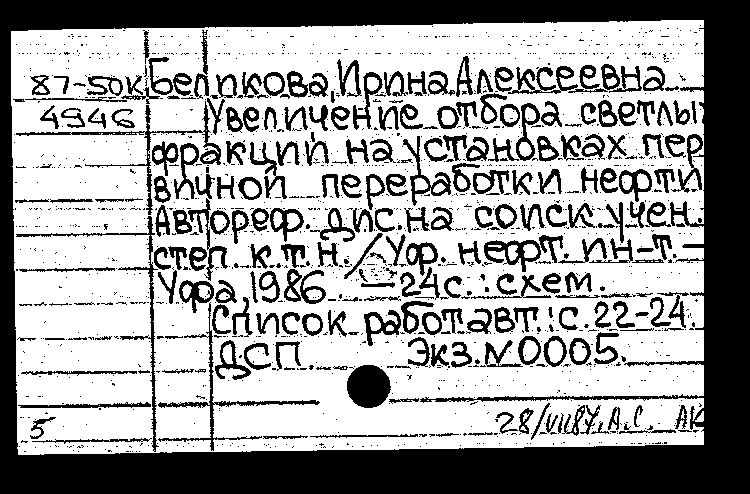 87-50к Беликова, Ирина Алексеевна
4946 Увеличение отбора светлых
фракций на установках пер
вичной переработки нефти
Автореф. дис. на соиск. учен.
степ. к.т.н. / Уф. нефт. ин-т. –
Уфа, 1986. – 24с. : схем.
Список работ авт.: с. 22-24.
ДСП. Экз. N 0005.
5 28/VII87. А.С. АК